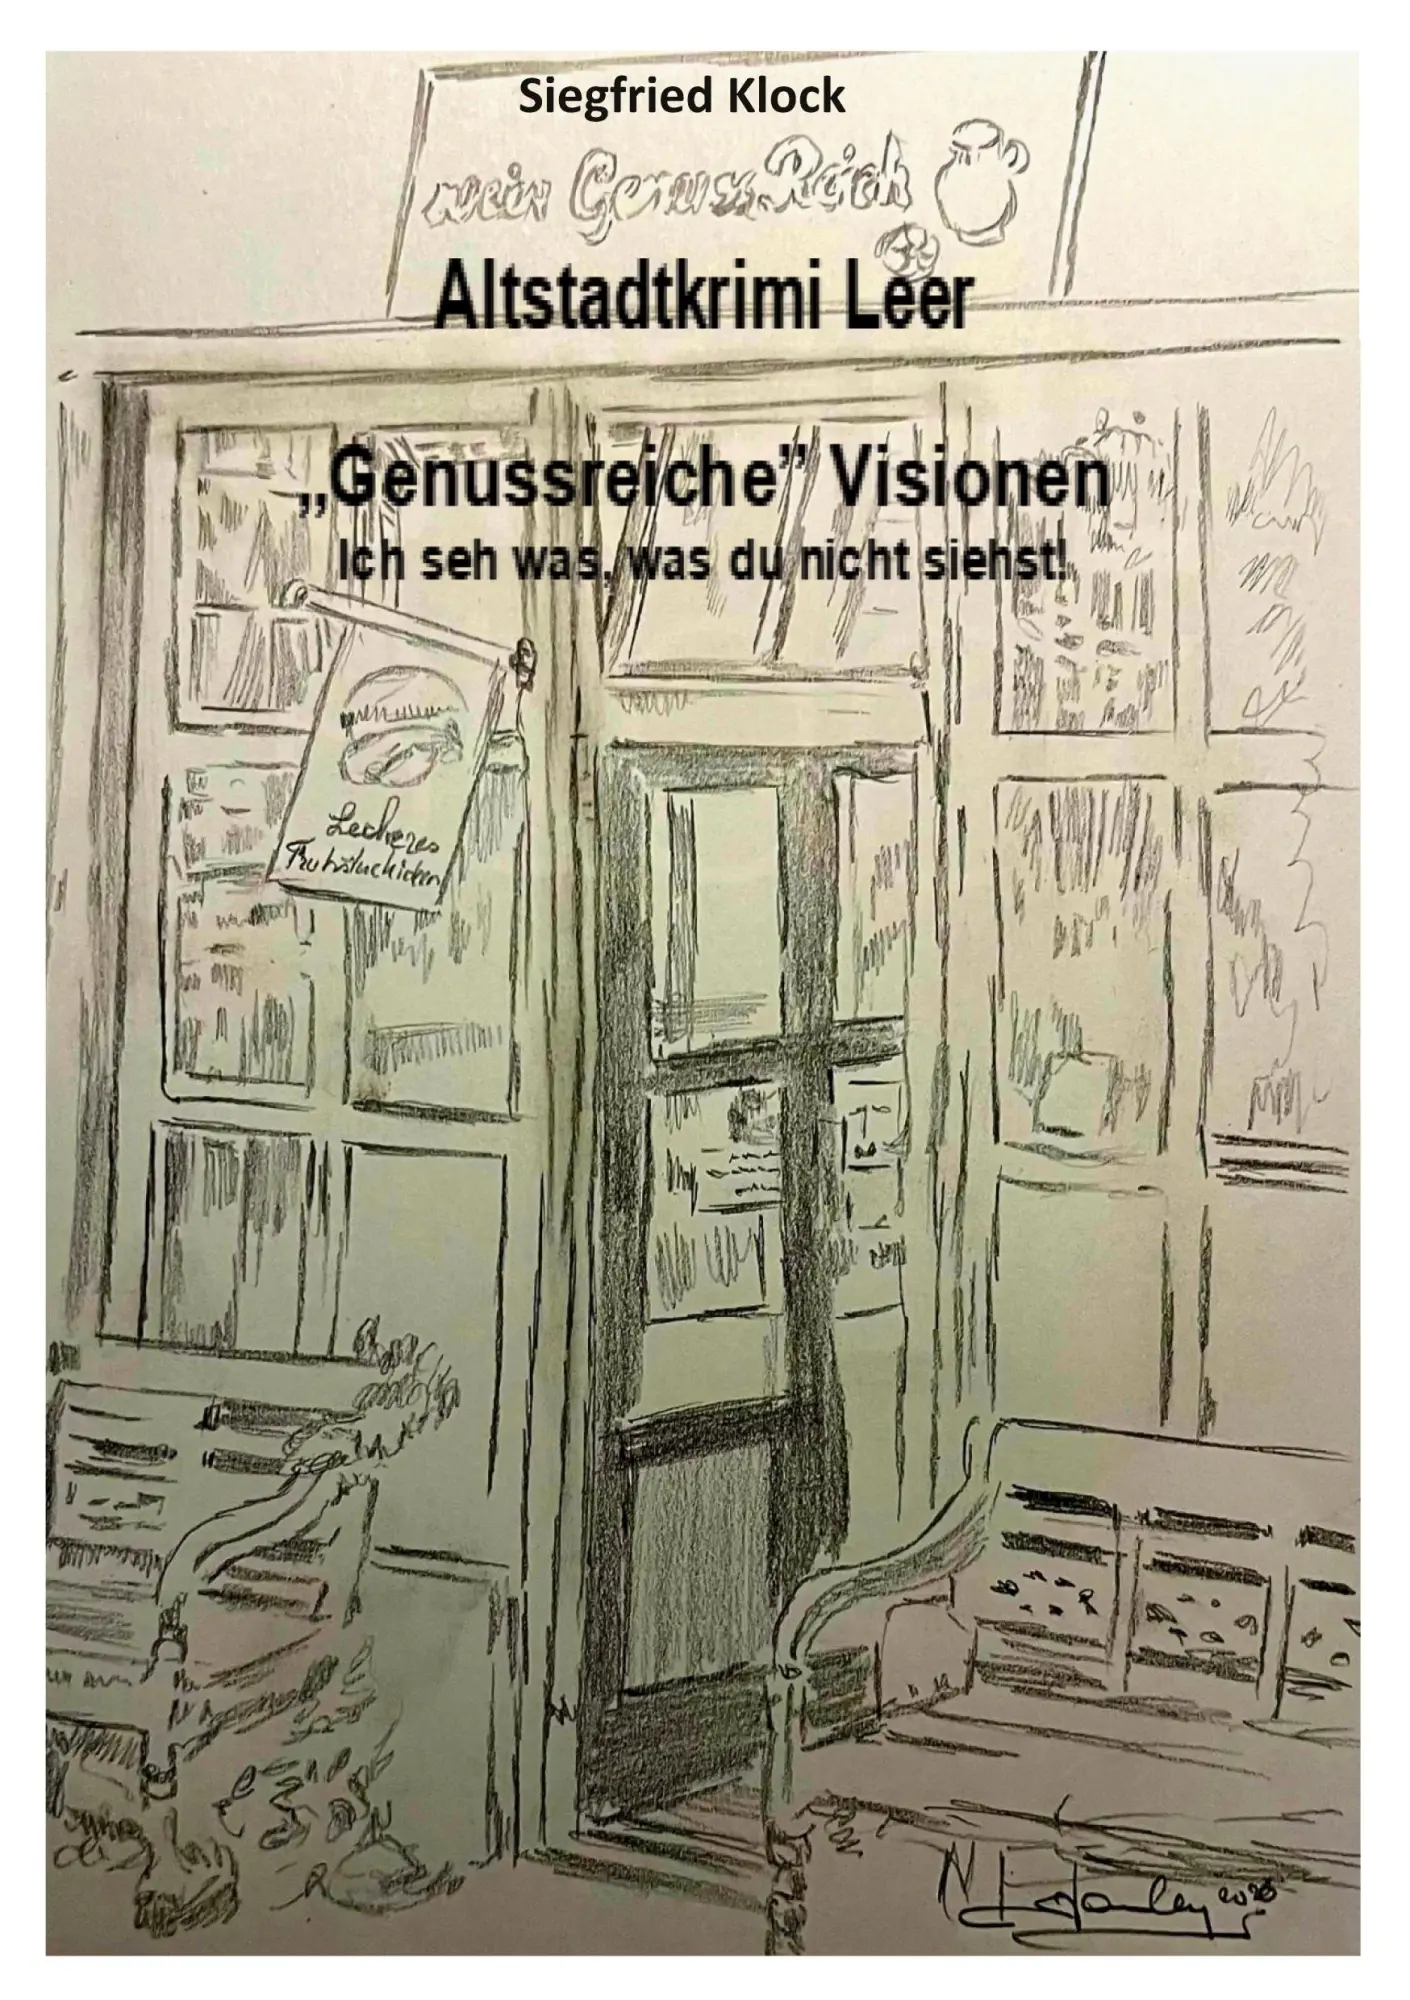 Siegfried Klock
mein GenussReich
Altstadtkrimi Leer
„Genussreiche” Visionen
Ich seh was, was du nicht siehst!
Leckeres